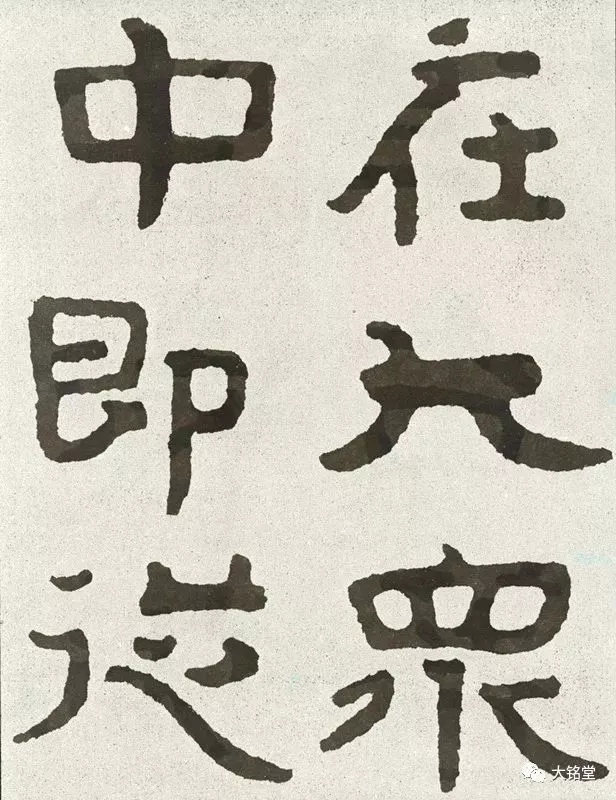 在大眾
中即從
大铭堂